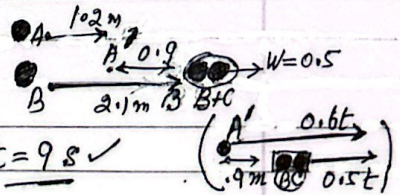 1.2 m
A A' 0.9 W=0.5
B 2.1m B B+C
t = 9 s ✓
A' 0.6t
.9m BC 0.5t